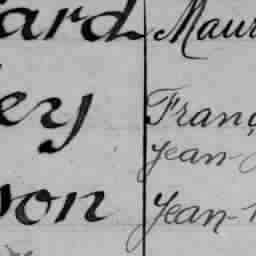 ard Maur
ey Franç
Jean-
son Jean-